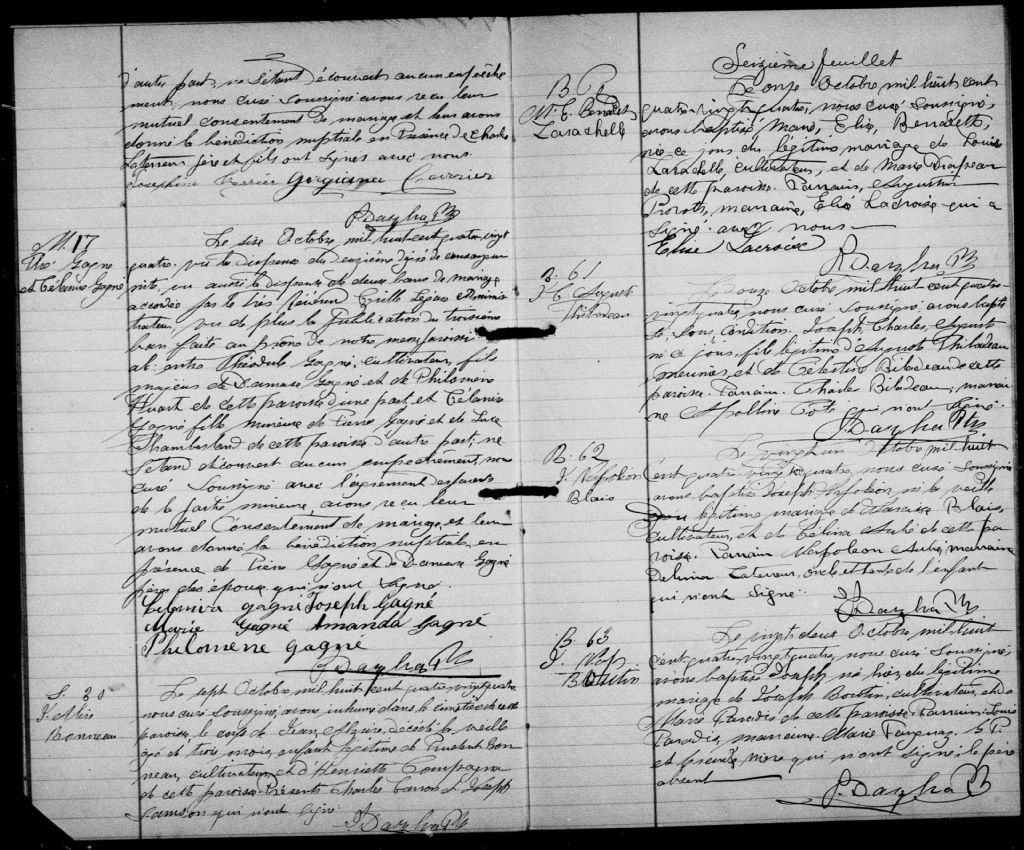 d'autre part, ne s'étant découvert aucun empêche
ment, nous curé soussigné avons reçu leur
mutuel consentement de mariage et leur avons
donné la bénédiction nuptiale en présence de Charles
père et fils ont signés avec nous.
Joséphine Georgianna
M. 17
Thé. Gagné
et Célanire Gagné
Le six Octobre mil huit cent quatre vingt
quatre. vu la dispense du deuxième degré de consangui
nité, vu aussi la dispense de deux bans de mariage
accordée par le très Révérend Cyrille Légaré Adminis
trateur, vu de plus la publication du troisième
ban faite au prône de notre messe paroissi
ale entre Théodule Gagné, cultivateur, fils
majeur de Damase Gagné et de Philomène
Huart de cette paroisse d'une part, et Célanire
Gagné fille mineure de Pierre Gagné et de Luce
Chamberland de cette paroisse d'autre part; ne
s'étant découvert aucun empêchement, nous
curé soussigné avec l'agrément des parents
de la partie mineure, avons reçu leur
mutuel consentement de mariage, et leur
avons donné la bénédiction nuptiale en
présence de Pierre Gagné et de Damase Gagné
père des époux qui n'ont signé.
Gagné Joseph Gagné
Marie Gagné Amanda Gagné
Philomène Gagné
S. 30
Bonneau
Le sept Octobre mil huit cent quatre vingt quatre
nous curé soussigné, avons inhumé dans le cimetière de cette
paroisse, le corps de Jean décédé la veille
agé de trois mois, enfant légitime de Prudent Bon
neau, cultivateur, et d'Henriette Compagna
de cette paroisse. Présents Charles et Joseph
Samson qui n'ont signé.
Seizième feuillet
B. 60
M. E. Benadette
Larochelle
Le onze Octobre mil huit cent
quatre-vingt quatre, nous curé soussigné,
avons baptisé Marie, Elise, Benadette,
née ce jour du légitime mariage de Louis
Larochelle, cultivateur, et de Marie
de cette paroisse. Parrain, Augustin
marraine, Elise Lacroix qui a
signé avec nous
Elise Lacroix
B. 61
J. C. Auguste
Thibodeau
Le douze Octobre, mil huit cent quatre-
vingt quatre, nous curé soussigné, avons bapti
sé, sous condition, Joseph, Charles, Auguste
né ce jour, fils légitime d'Auguste Thibodeau
meunier, et de Célestine Bilodeau de cette
paroisse. Parrain. Charles Bilodeau, marrai
ne Apolline Coté qui n'ont signé.
B. 62
J. Napoléon
Blais
Le vingt un Octobre mil huit
cent quatre vingt quatre, nous curé soussigné
avons baptisé Joseph Napoléon né la veille
légitime mariage de Narcisse Blais,
cultivateur, et de Célina Aubé de cette pa
roisse. Parrain Napoléon Aubé, marraine
Delvina oncle et tante de l'enfant
qui n'ont signé.
B. 63
J. Nap
Boutin
Le vingt deux Octobre mil huit
cent quatre vingt quatre, nous curé soussigné,
avons baptisé Joseph né hier, du légitime
mariage de Joseph Boutin, cultivateur, et de
Marie Paradis de cette paroisse. Parrain: Louis
Paradis, marraine Marie
et qui n'ont signé; le père
absent